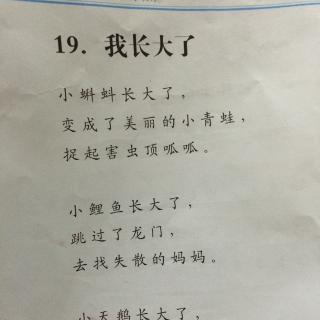 19. 我长大了
小蝌蚪长大了，
变成了美丽的小青蛙，
捉起害虫顶呱呱。
小鲤鱼长大了，
跳过了龙门，
去找失散的妈妈。
小天鹅长大了，